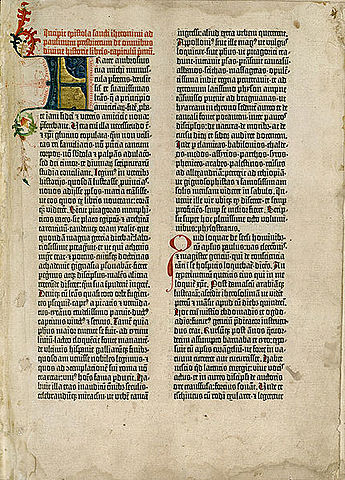 Incipit epistola sancti iheronimi ad
paulinum presbiterum de omnibus
divine historie libris·capitulū pmū.
Frater ambrosius
tua michi munus-
cula pferens· detulit
sil' et suauissimas
lrās· q̄ a principio
amiciciaꝝ· fidē pba-
te iam fidei et veteris amicicie noua
pferebant. Vera eni illa necessitudo ē·
et xpi glutino copulata· qm̄ non vtili-
tas rei familiaris· nō pñtia tantum
corpoꝝ· nō sƀdola et palpās adulacō·
sed dei timor· et diuinaꝝ scripturarū
studia conciliant. Legim⁹ in veterib⁹
historijs· quosdā lustrasse puincias·
nouos adijsse pplos· maria trāsisse·
ut eos quos ex libris nouerant: corā
q̄z viderēt. Sicut pitagoras memphi-
ticos vates· sic plato egiptū· et architā
tarentinū· eandemq̄ oram ytalie· que
quondā magna grecia dicebat̄: labo-
riosissime peragrauit· et ut qui athenis
mgr̄ erat· et potens· cuiusq̄ doctrinas
achademie gignasia psonabāt· fieret
peregrinus atq̄ discipulus· malēs aliena
verecunde discere: q̄ sua impudent̄ ingerere.
Deniq̄ cū lrās quasi toto orbe fugien-
tes psequit̄· capt⁹ a piratis et venūda-
tus· tirāno crudelissimo paruit· duct⁹
captiuus vinct⁹ et seruus. Tamē quia
phus maior emente se fuit: ad tytum
liuiū· lacteo eloquētie fonte manantē·
de vltimis hispanie galliarūq̄ finib⁹·
quosdam venisse nobiles legimus: et
quos ad cōtemplacionē sui roma nō
traxerat: vni⁹ hoīs fama pduxit. Ha-
buit illa etas inauditū omīb⁹ seculis·
celebrandūq̄ miraculū· ut vrbē tantā
ingressi· aliud extra vrbem quererent.
Apolloni⁹ siue ille mag⁹ ut vulgus
loquitur· siue phus· ut pitagorici tra-
dunt· intrauit psas· ptrāsiuit caucasū·
albanos· scithas· massagetas· opulē-
tissima indie regna penetrauit: et ad
extremum latissimo physon amne
trāsmisso puenit ad bragmanas· ut
hyarcam in throno sedentē aureo et de
tantali fonte potantem· inter paucos
discipulos· de natura· de moribus ac de
cursu dieꝝ et sideꝝ audiret docentem.
Inde p elamitas· babilonios· chalde-
os· medos· assirios· parthos· syros·
phenices· arabes· palestinos· reuersus
ad alexandriā: perrexit ad ethiopiā·
ut gignosophistas et famosissimam
solis mensam videret in sabulo. Inue-
nit ille vir vbiq̄ qd disceret· et semp
proficiens· semp se melior fieret. Scrip-
sit super hoc plenissime octo voluminib⁹·
phylostratus.
Quid loquar de secli hominib⁹·
cū apl'us paulus· vas electōnis·
et magister gentiū· qui de consciencia
tanti i se hospitis loquebat̄· dicēs. An
experimentū queritis eius qui in me
loquit̄ xpc. Post damascū arabiāq̄
lustratā: ascēdit iherosolimā ut vide-
ret petrū et māsit apud eū dieb⁹ quindeci.
Hoc eni misterio ebdomadis et ogdo-
adis: futur⁹ gentiū pdicator instruen-
dus erat. Rursūq̄ post ānos q̄tuor-
decim assumpto barnaba et tyto· expo-
suit cū aplis euangeliū: ne forte in va-
cuum curreret aut cucurrisset. Habet
nescio qd latentis energie· viue voci
actus: et in aures discipuli de auctoris
ore transfusa: fortius sonat. Vnde et
eschineus cū rodi exularet· et legeretur